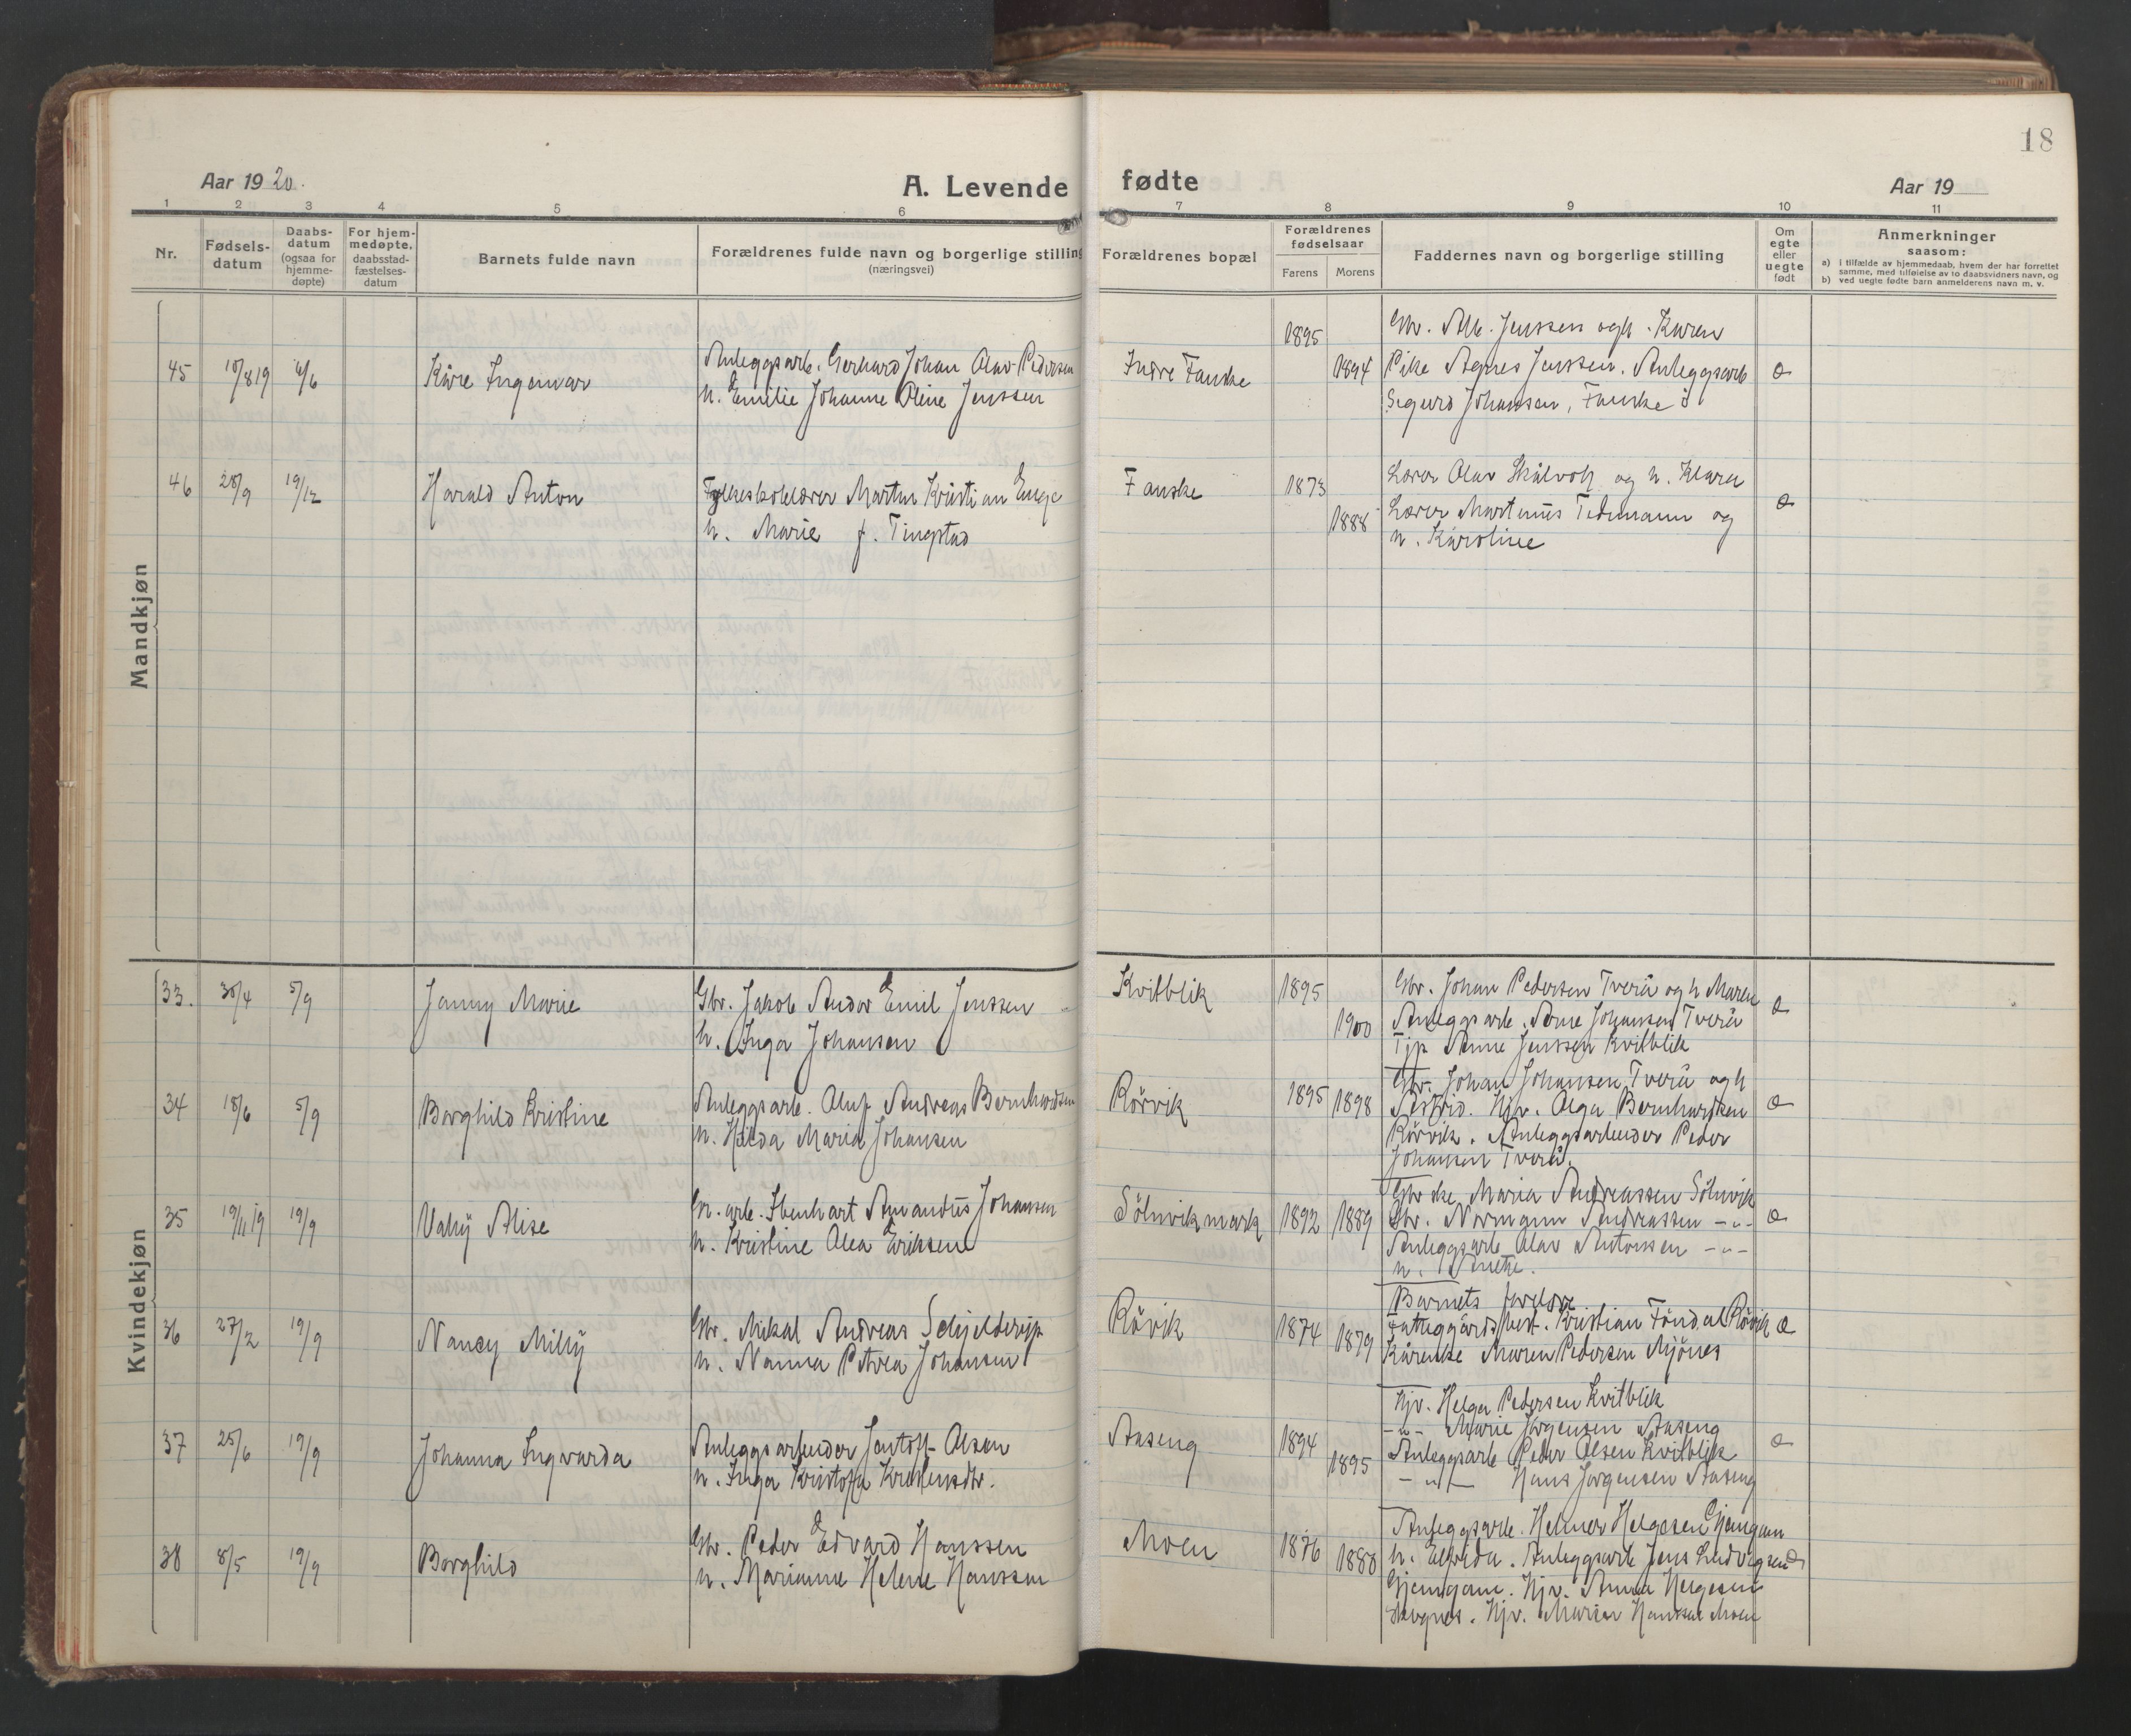 18
Aar 1920.
A. Levende fødte
Aar 19
1 2 3 4 5 6 7 8 9 10 11
Nr.
Fødsels-
datum
Daabs-
datum
(ogsaa for
hjemme-
døpte)
For hjem-
medøpte,
daabsstad-
fæstelses-
datum
Barnets fulde navn
Forældrenes fulde navn og borgerlige stilling
(næringsvei)
Forældrenes bopæl
Forældrenes
fødselsaar
Farens Morens
Faddernes navn og borgerlige stilling
Om
egte
eller
uegte
født
Anmerkninger
saasom:
a) i tilfælde av hjemmedaab, hvem der har forrettet
samme, med tilføielse av to daabsvidners navn, og
b) ved uegte fødte barn anmelderens navn m. v.
Mandkjøn
45 10/8 19 6/6 Kåre Ingemar
Anleggsarb. Gerhard Johan Olav Pedersen
h. Emilie Johanne Oline Jenssen
Indre Fauske
1895
1894
Gbr. Alb. Jenssen og h. Karen
Pike Agnes Jenssen. Anleggsarb
Sigurd Johansen, Fauske i
e
46 28/9 19/12 Harald Anton
Fylkesskolelærer Martin Kristian Enge
h. Marie f. Tingstad
Fauske
1873
1888
Lærer Olav Skålvoll og h. Klara
Lærer Martinus Tidemann og
h. Karoline
e
Kvindekjøn
33. 30/4 5/9 Janny Marie
Gbr. Jakob Andor Emil Jenssen
h. Inga Johansen
Kvitblik
1895
1900
Gbr. Johan Pedersen Tverå og h Maren
Anleggsarb. Arne Johansen Tverå
Tjp Anne Jenssen Kvitblik
e
34 18/6 5/9 Borghild Kristine
Anleggsarb. Oluf Andreas Bernhardsen
h. Hilda Maria Johansen
Rörvik
1895 1898
Gbr. Johan Johansen, Tverå og h
Astrid. Hjv. Olga Bernhardsen
Rörvik. Anleggsarbeider Peder
Johansen Tverå.
e
35 19/11 19 19/9 Valhÿ Alise
An. arb. Ibenhart Amandus Johansen
h. Kristine Olea Eriksen
Sölvikmark
1892 1889
Gbrske Maria Andreassen Sölvik
Gbr. Normann Andreassen -"-
Anleggsarb Olav Antonsen -"-
h. Anette.
e
36 27/2 19/9 Nancy Millÿ
Gbr. Mikal Andreas Schjelderup
h. Nanna Petrea Johansen
Rövik
1874 1879
Barnets foreldre
Fattiggårdsbest. Kristian Föndal Rövik
Kårenke Maren Pedersen Mjönes
e
37 25/6 19/9 Johanna Ingvarda
Anleggsarbeider Jentoft Olsen
h. Inga Kristoffa Kristensdtr.
Aaseng
1894
1895
Hjv. Helga Pedersen Kvitblik
-"- Marie Jörgensen Aaseng
Anleggsarb Peder Olsen Kvitblik
-"- Hans Jørgensen Aaseng
e
38 8/5 19/9 Borghild
Gbr. Peder Edvard Hanssen
h. Marianne Helene Hanssen
Moen
1876
1880
Anleggsarb. Helmer Helgesen Gjemgam
h. Elfrida. Anleggsarb Jens Ludvigsen
Gjemgam. Hjv. Anna Helgesen
Hjv. Marian Hanssen Moen
e